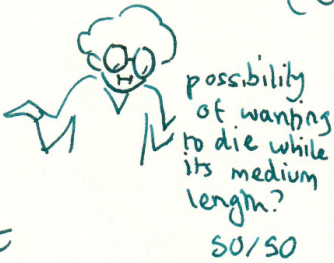 possibility
of wanting
to die while
its medium
length?
so/so